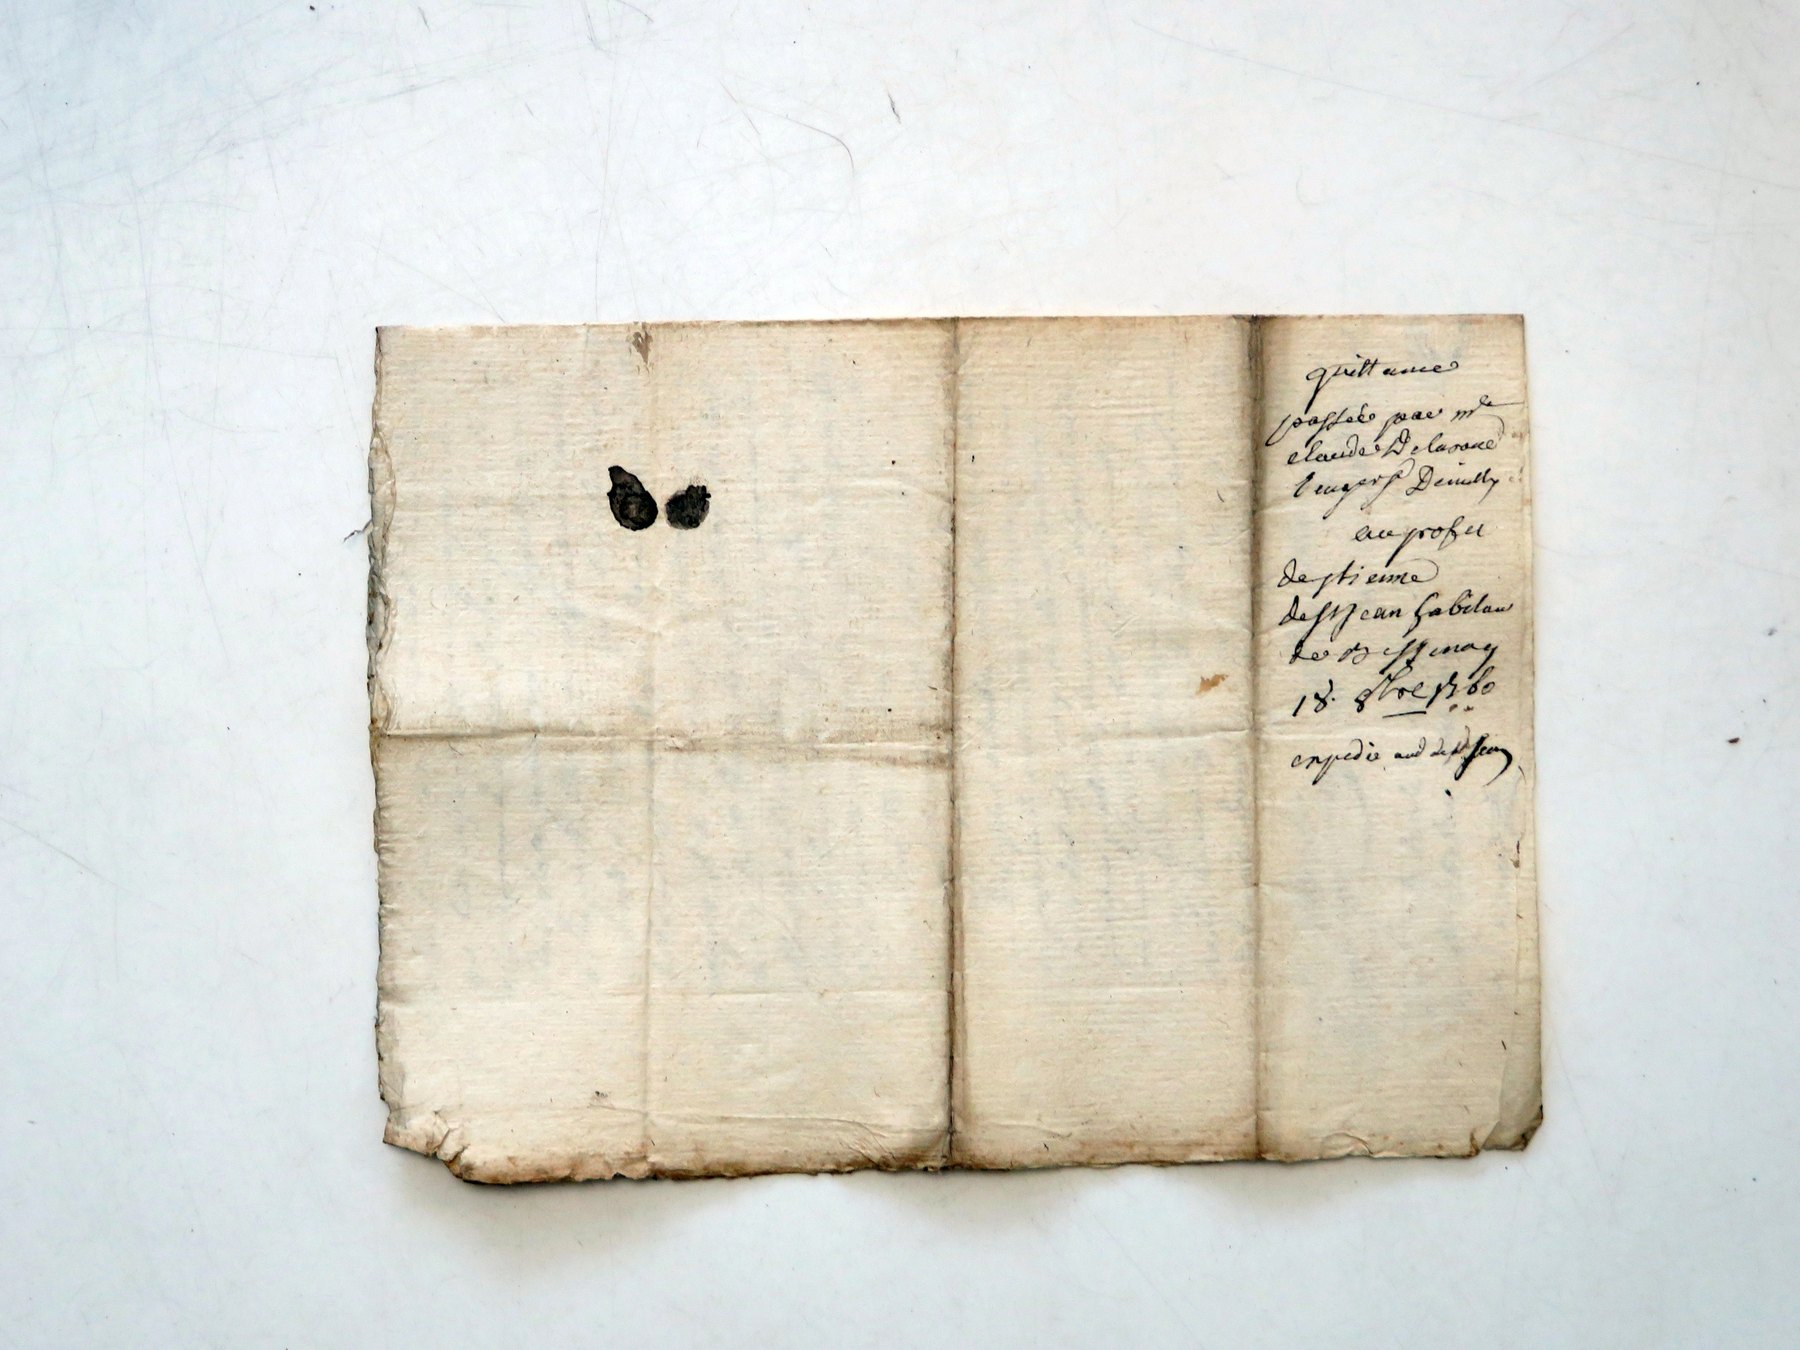 quittance
passée par m
claude Delaroue
au profit
destienne
de st jean habitan
de Bessenay
18. 8bre 1760
expedie aud de st jean